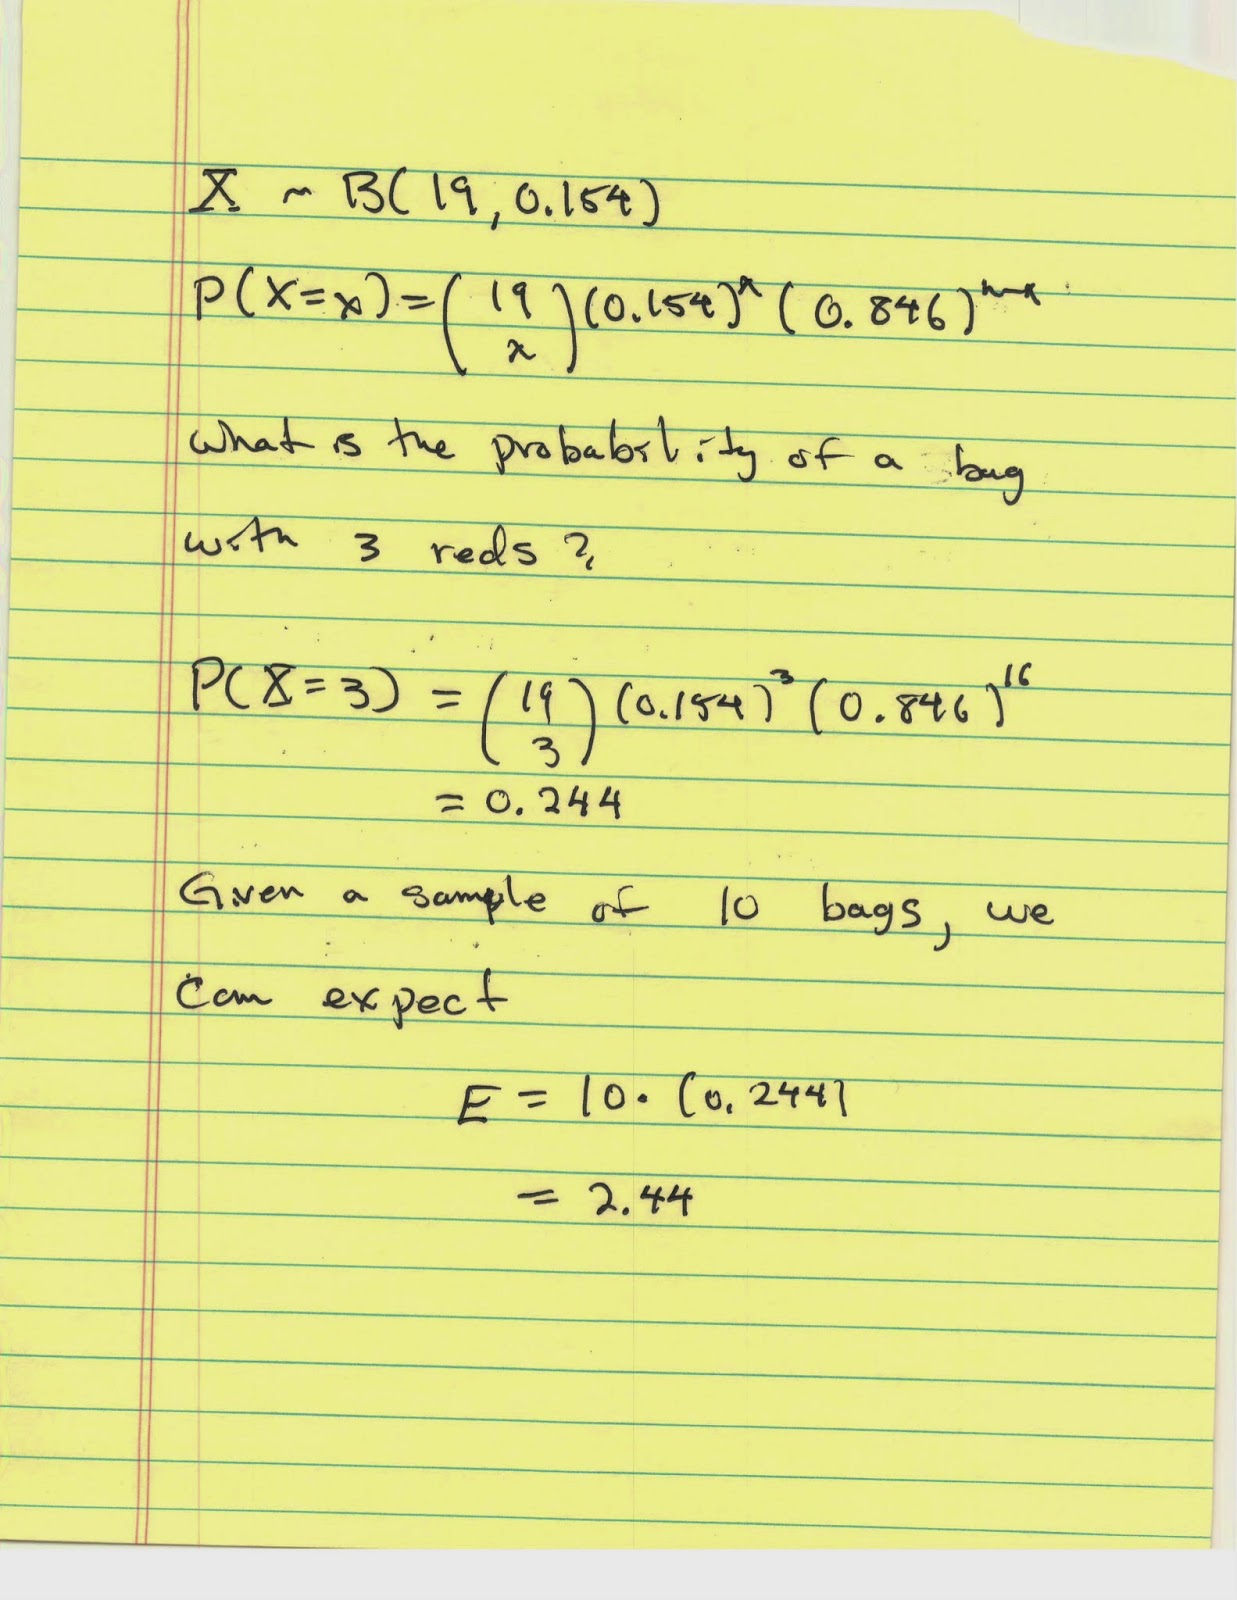 X ~ B(19, 0.154)
P(X=x) = (19 x) (0.154)^x (0.846)^n-x
What is the probability of a bag
with 3 reds?
P(X=3) = (19 3) (0.154)^3 (0.846)^16
= 0.244
Given a sample of 10 bags, we
can expect
E = 10 · (0.244)
= 2.44